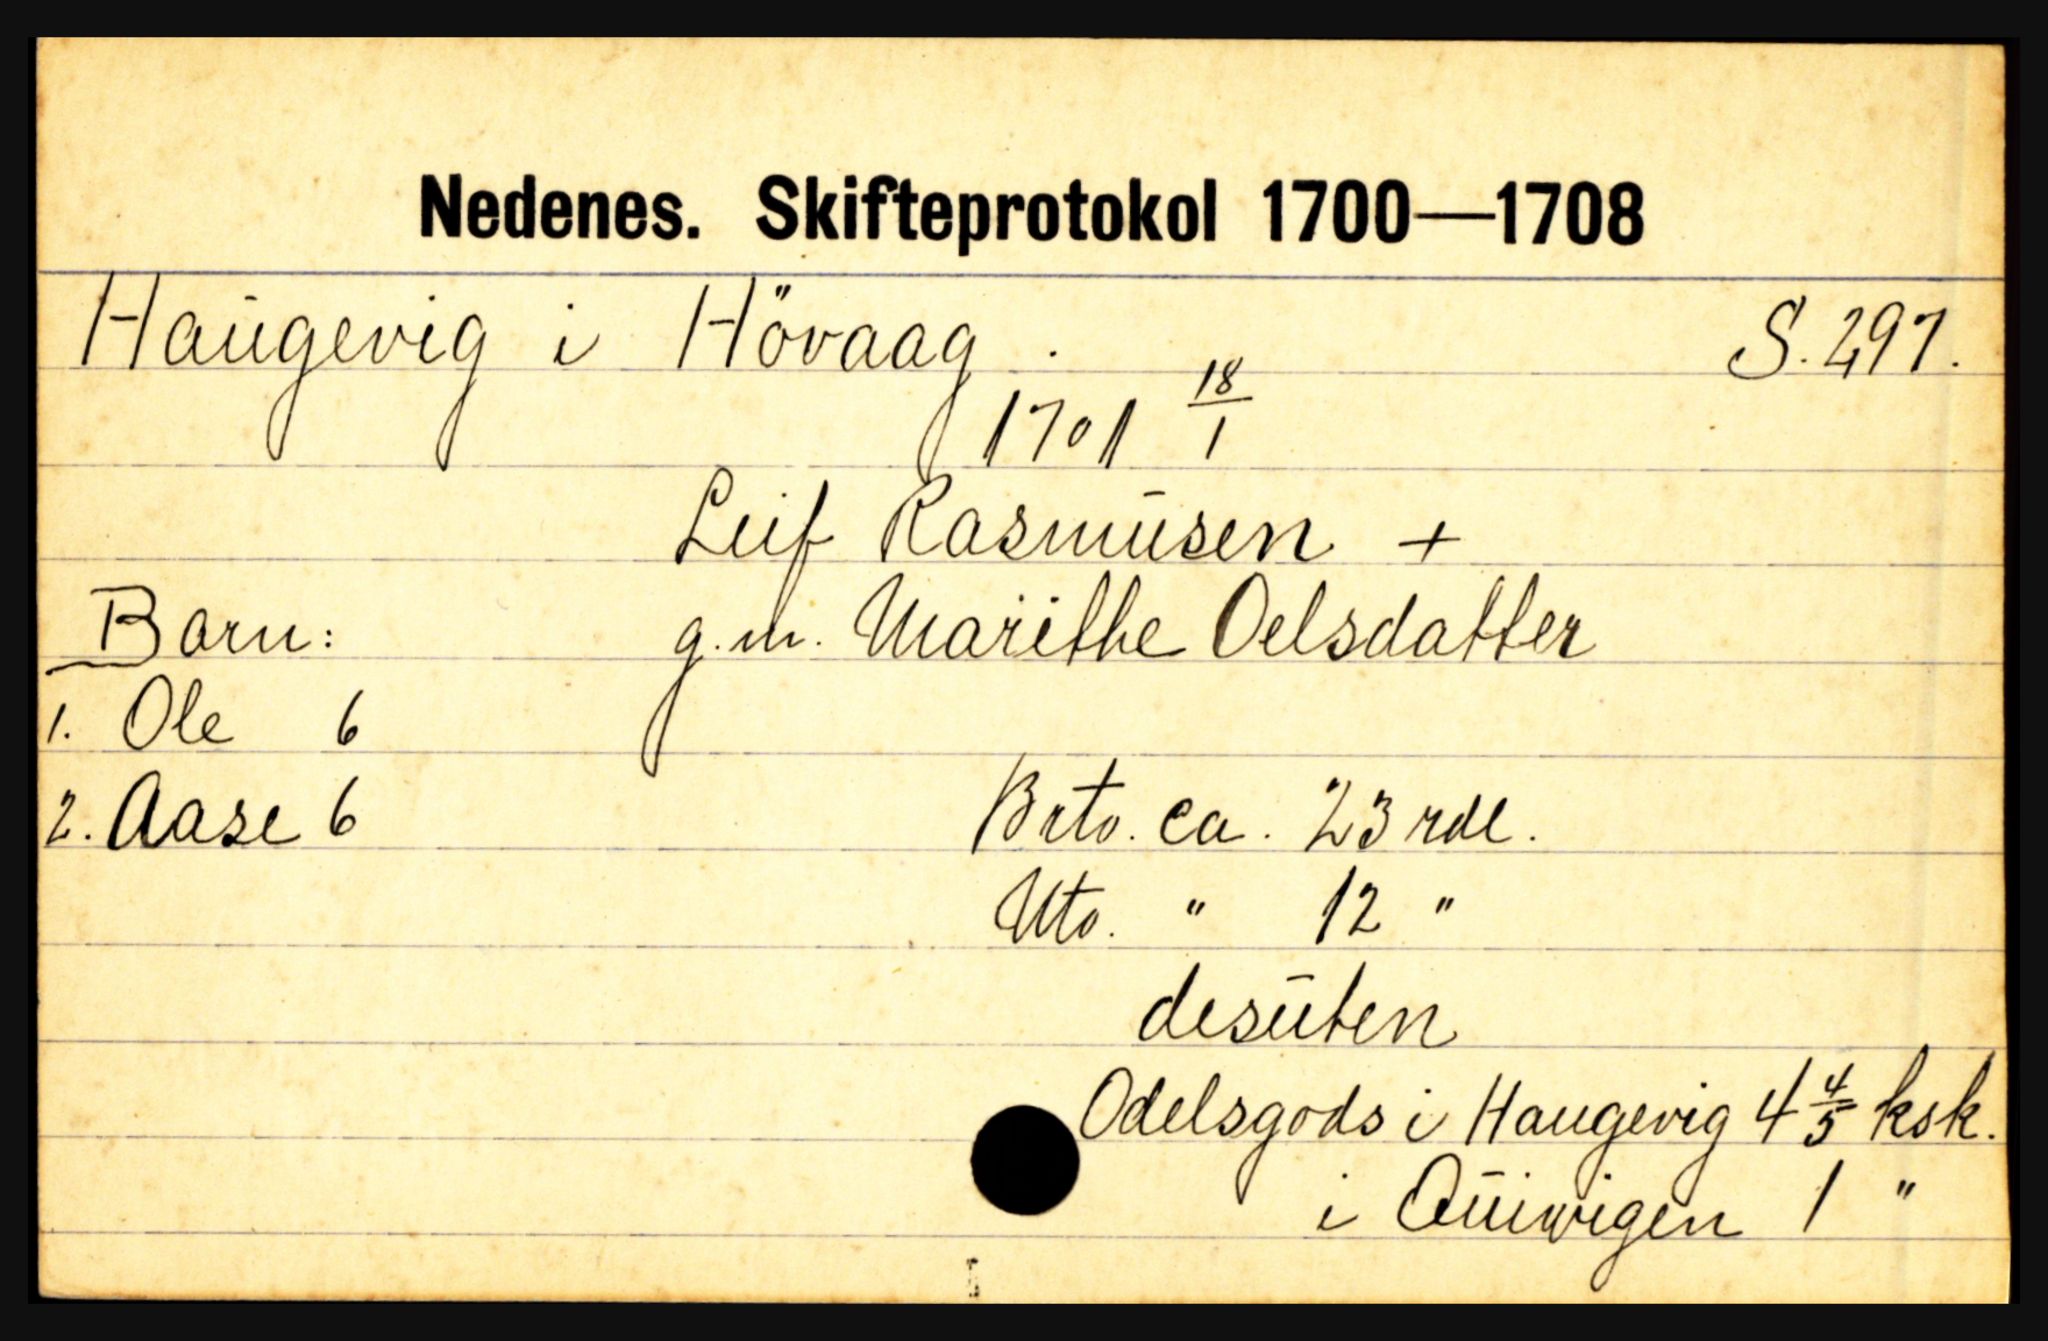 Nedenes. Skifteprotokol 1700—1708
Haugevig i Hövaag. S. 297.
1701 18/1
Leif Rasmusen +
g.m. Marithe Oelsdatter
Barn:
1. Ole 6
2. Aase 6
Brto. ca. 23 rdl.
Nto. " 12 "
desuten
Odelsgods i Haugevig 4 4/5 ksk.
i Qūiwigen 1 "